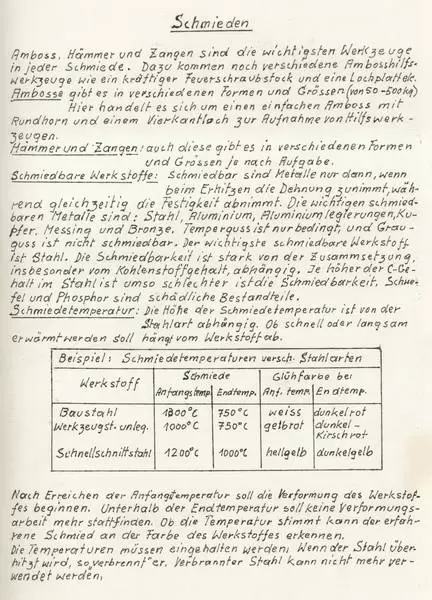 Schmieden
Amboss, Hämmer und Zangen sind die wichtigsten Werkzeuge
in jeder Schmiede. Dazu kommen noch verschiedene Ambosshilfs-
werkzeuge wie ein kräftiger Feuerschraubstock und eine Lochplatte.
Ambosse gibt es in verschiedenen Formen und Grössen (von 50-500kg)
Hier handelt es sich um einen einfachen Amboss mit
Rundhorn und einem Vierkantloch zur Aufnahme von Hilfswerk-
zeugen.
Hämmer und Zangen: auch diese gibt es in verschiedenen Formen
und Grössen je nach Aufgabe.
Schmiedbare Werkstoffe: Schmiedbar sind Metalle nur dann, wenn
beim Erhitzen die Dehnung zunimmt, wäh-
rend gleichzeitig die Festigkeit abnimmt. Die wichtigen schmied-
baren Metalle sind: Stahl, Aluminium, Aluminiumlegierungen, Ku-
pfer, Messing und Bronze. Temperguss ist nur bedingt, und Grau-
guss ist nicht schmiedbar. Der wichtigste schmiedbare Werkstoff
ist Stahl. Die Schmiedbarkeit ist stark von der Zusammsetzung,
insbesonder vom Kohlenstoffgehalt, abhängig. Je höher der C-Ge-
halt im Stahl ist umso schlechter ist die Schmiedbarkeit. Schwe-
fel und Phosphor sind schädliche Bestandteile.
Schmiedetemperatur: Die Höhe der Schmiedetemperatur ist von der
Stahlart abhängig. Ob schnell oder langsam
erwärmt werden soll hängt vom Werkstoff ab.
Beispiel: Schmiedetemperaturen versch. Stahlarten
Werkstoff Schmiede Glühfarbe bei
Anfangstemp. Endtemp. Anf. temp. Endtemp.
Baustahl 1300°C 750°C weiss dunkelrot
Werkzeugst. unleg. 1000°C 750°C gelbrot dunkel-
Kirschrot
Schnellschnittstahl 1200°C 1000°C hellgelb dunkelgelb
Nach Erreichen der Anfangstemperatur soll die Verformung des Werkstof-
fes beginnen. Unterhalb der Endtemperatur soll keine Verformungs-
arbeit mehr stattfinden. Ob die Temperatur stimmt kann der erfah-
rene Schmied an der Farbe des Werkstoffes erkennen.
Die Temperaturen müssen eingehalten werden; Wenn der Stahl über-
hitzt wird, so "verbrennt" er. Verbrannter Stahl kann nicht mehr ver-
wendet werden,